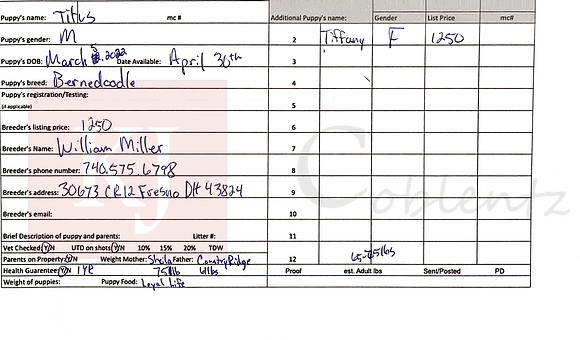 Puppy's name: Titus mc# Additional Puppy's name: Gender List Price mc#
Puppy's gender: M 2 Tiffany F 1250
Puppy's DOB: March 5, 2022 Date Available: April 30th 3
Puppy's breed: Bernedoodle 4
Puppy's registration/Testing: 5
(if applicable)
Breeder's listing price: 1250 6
Breeder's Name: William Miller 7
Breeder's phone number: 740.575.6798 8
Breeder's address: 30673 CR12 Fresno OH 43824 9
Breeder's email: 10
Brief Description of puppy and parents: Litter #: 11
Vet Checked: Y/N UTD on shots Y/N 10% 15% 20% TDW
Parents on Property: Y/N Weight Mother: Sheila Father: CountryRidge 12 65-75lbs
Health Guarantee: Y/N 1 YR 75lb Proof est. Adult lbs Sent/Posted PD
Weight of puppies: Puppy Food: Loyal Life
KJ Coblentz